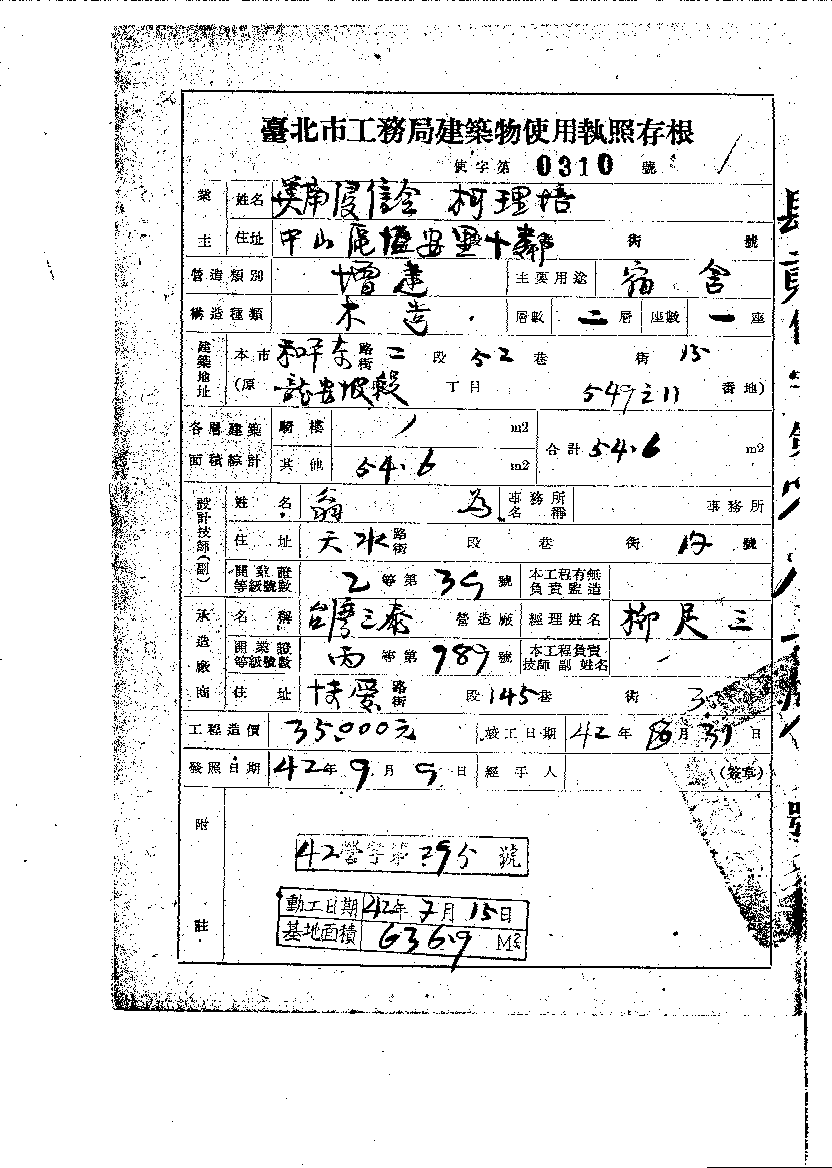 臺北市工務局建築物使用執照存根
使字第 0310 號
業主 姓名 美南浸信会 柯理培
住址 中山区 里十鄰 街 號
營造類別 增建 主要用途 宿舍
構造種類 木造 層數 二層 座數 一座
建築地址 本市 和平东路街二段52巷 街 15
(原 龍安坡 段 丁目 549之11 番地)
各層建築面積綜計 騎樓 / m2 合計 54.6 m2
其他 54.6 m2
設計技師(副) 姓名 翁 為 事務所名稱 事務所
住址 天水路街 段 巷 街 號
開業證等級號數 乙等第39號 本工程有無負責監造
承造廠商 名稱 台灣三泰 營造廠 經理姓名 柳 三
開業證等級號數 丙等第989號 本工程負責技師副姓名 /
住址 路街 段 145巷 街 3
工程造價 35,000元 竣工日期 42年 月31日
發照日期 42年9月9日 經手人 (簽章)
附註
42營字第 號
動工日期 42年7月15日
基地面積 636.9 M2